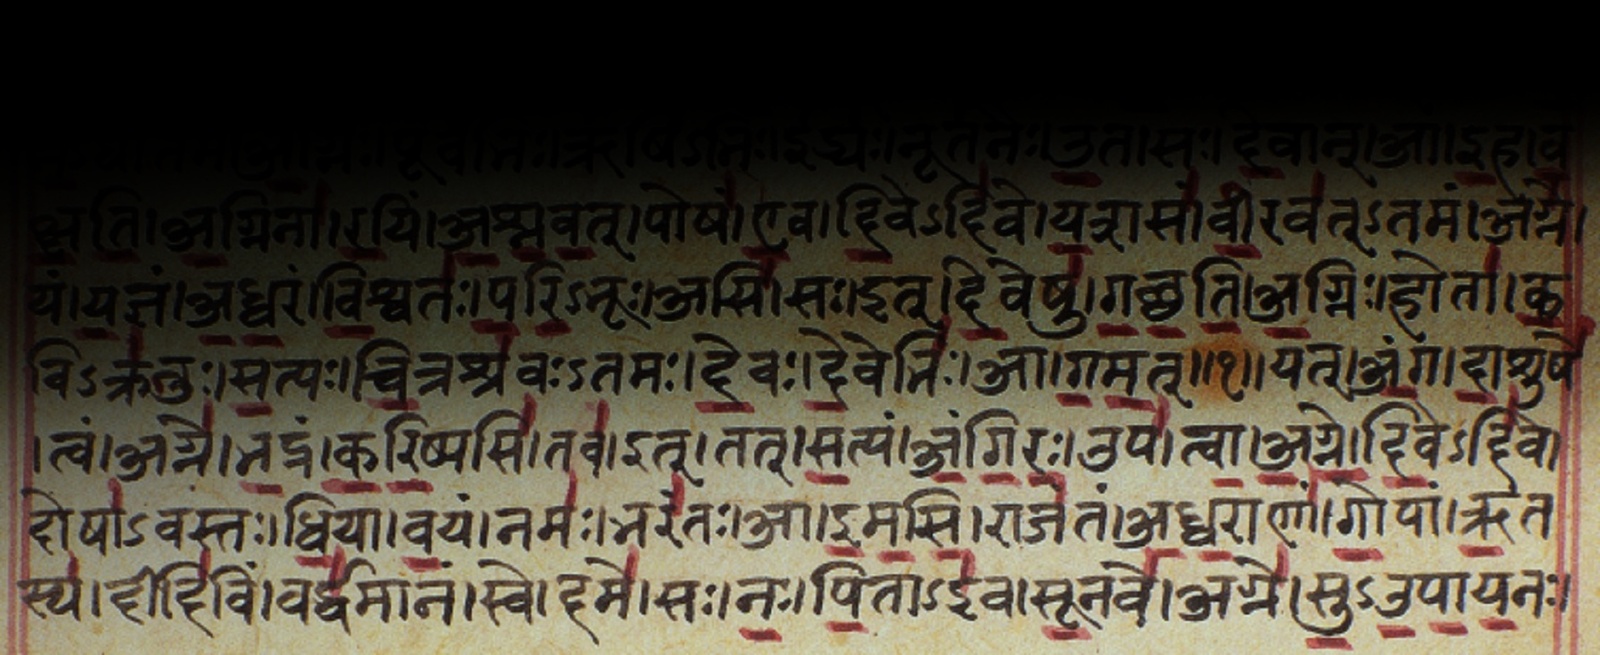 अग्निः। पूर्वेभिः। ऋषिऽभिः। ईड्यः। नूतनैः। उत। सः। देवान्। आ। इह। व
क्षति। अग्निना। रयिं। अश्नवत्। पोषं। एव। दिवेऽदिवे। यशसं। वीरवत्ऽतमं। अग्ने।
यं। यज्ञं। अध्वरं। विश्वतः। परिऽभूः। असि। सः। इत्। देवेषु। गच्छति। अग्निः। होता। क
विऽक्रतुः। सत्यः। चित्रश्रवःऽतमः। देवः। देवेभिः। आ। गमत्॥१॥ यत्। अंग। दाशुषे
। त्वं। अग्ने। भद्रं। करिष्यसि। तव। इत्। तत्। सत्यं। अंगिरः। उप। त्वा। अग्ने। दिवेऽदिवे।
दोषाऽवस्तः। धिया। वयं। नमः। भरंतः। आ। इमसि। राजंतं। अध्वराणां। गोपां। ऋत
स्य। दीदिविं। वर्द्धमानं। स्वे। दमे। सः। नः। पिताऽइव। सूनवे। अग्ने। सुऽउपायनः।